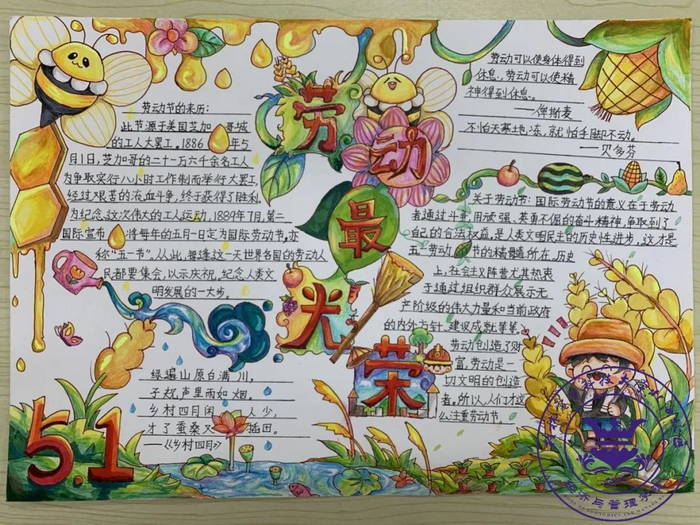 劳动最光荣
劳动节的来历:
此节源于美国芝加哥城
的工人大罢工。1886年5
月1日,芝加哥的二十一万六千余名工人
为争取实行八小时工作制而举行大罢工,
经过艰苦的流血斗争,终于获得了胜利,
为纪念这次伟大的工人运动,1889年7月,第二
国际宣布将每年的五月一日定为国际劳动节,亦
称"五一节"。从此,每逢这一天世界各国的劳动人
民都要集会,以示庆祝,纪念人类文
明发展的一大步。
绿遍山原白满川,
子规声里雨如烟。
乡村四月闲人少,
才了蚕桑又插田。
——《乡村四月》
5.1
劳动可以使身体得到
休息,劳动可以使精
神得到休息。
——俾斯麦
不怕天寒土地冻,就怕手脚不动。
——贝多芬
关于劳动节:国际劳动节的意义在于劳动
者通过斗争,用顽强、英勇不屈的奋斗精神,争取到了
自己的合法权益,是人类文明民主的历史性进步,这才是
五一劳动节的精髓所在。历史
上,在会主义阵营尤其热衷
于通过组织群众展示无
产阶级的伟大力量和当前政府
的内外方针、建设成就等等。
劳动创造了财
富,劳动是一
切文明的创造
者,所以人们才这
么注重劳动节。